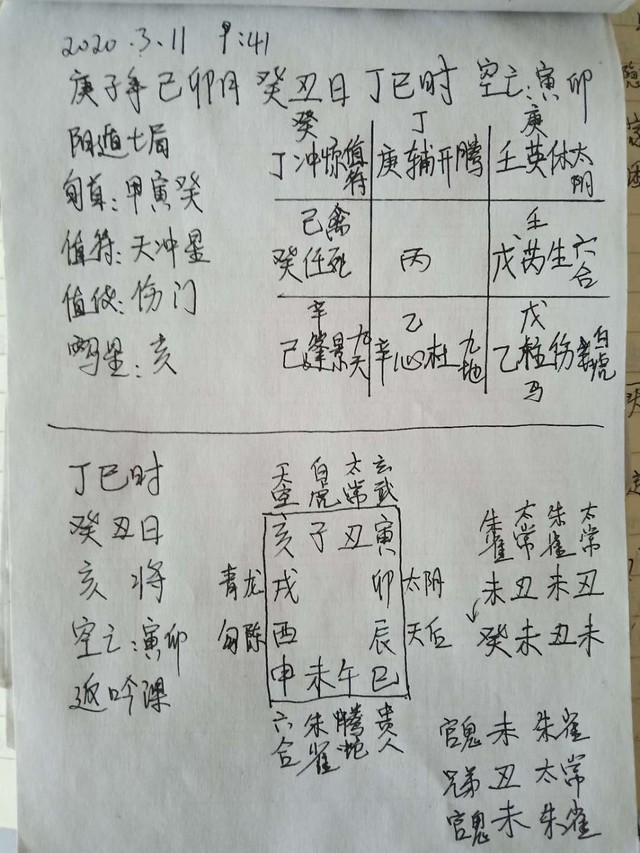 2020.3.11 9:41
庚子年己卯月 癸丑日 丁巳时 空亡:寅卯
阳遁七局
旬首:甲寅癸
值符:天冲星
值使:伤门
马星:亥
癸 丁 庚
丁冲惊值符 庚辅开腾 壬英休太阴
己禽 壬
癸任死 丙 戊芮生六合
辛 乙 戊
己蓬景九天 辛心杜九地 乙柱伤白虎
马
丁巳时
癸丑日
亥将
空亡:寅卯
返吟课
天空 白虎 太常 玄武
亥 子 丑 寅
青龙 戌 卯 太阴
勾陈 酉 辰 天后
申 未 午 巳
六合 朱雀 腾蛇 贵人
朱雀 太常 朱雀 太常
未 丑 未 丑
癸 未 丑 未
官鬼 未 朱雀
兄弟 丑 太常
官鬼 未 朱雀